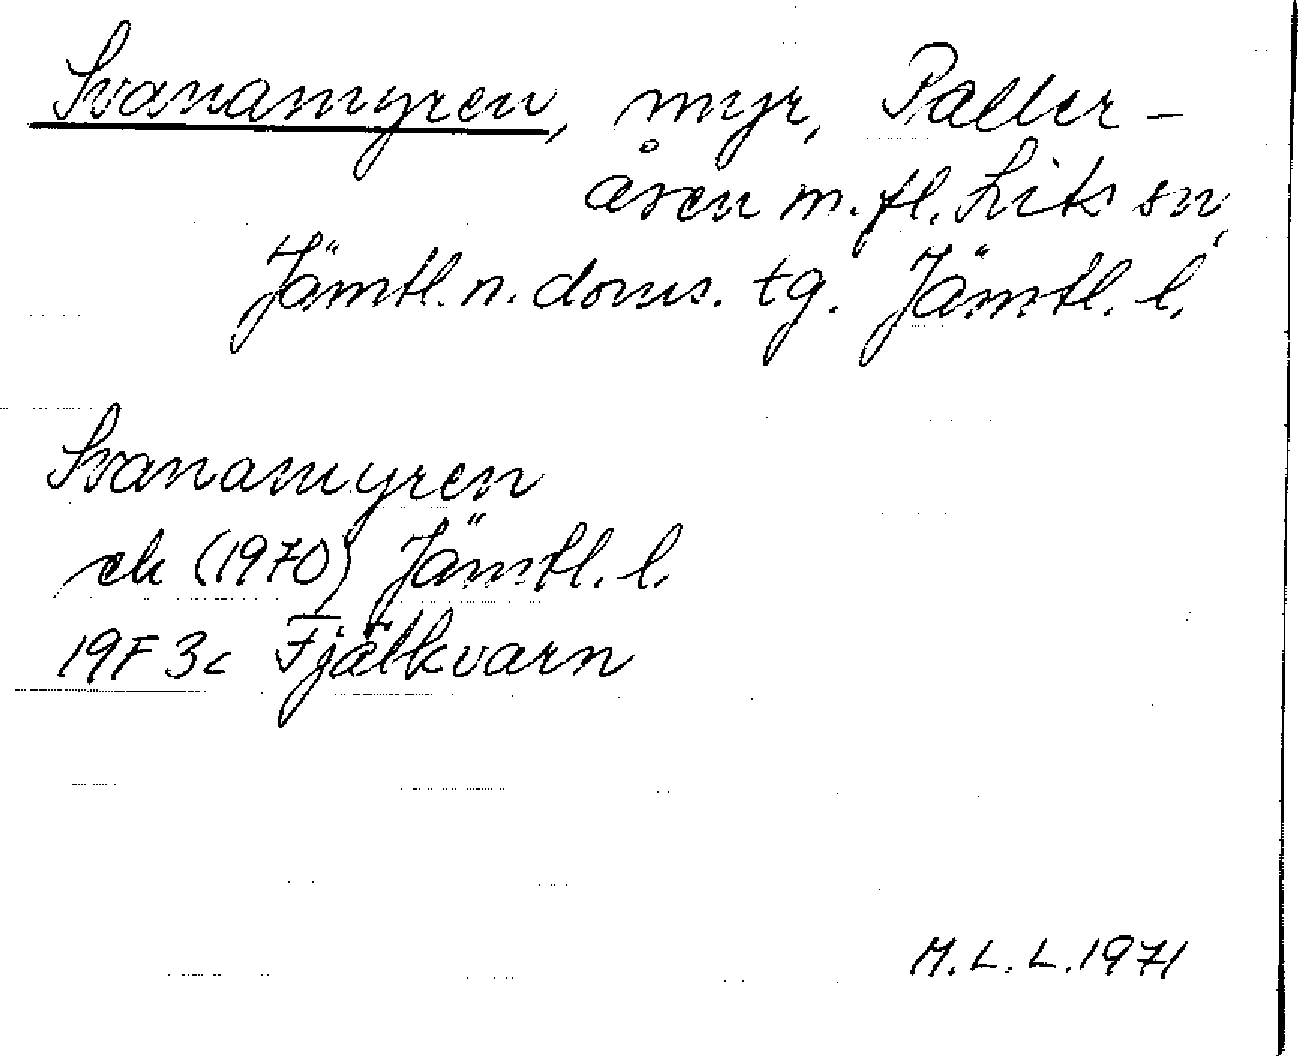 Svanamyren, myr, Paller-
åsen m. fl. Lits sn,
Jämtl. n. doms. tg. Jämtl. l.
Svanamyren
ek (1970) Jämtl. l.
19F 3c Fjälkvarn
M. L. L. 1971